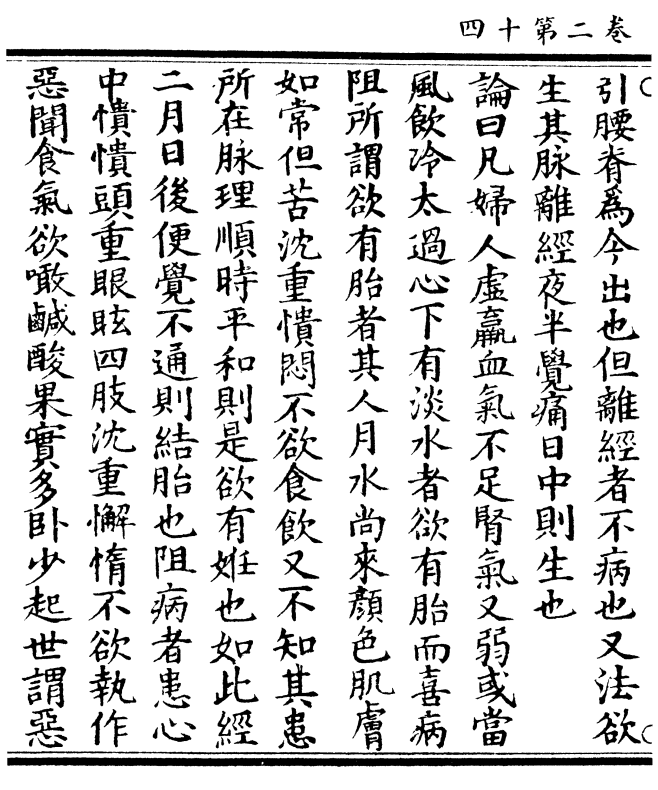 卷二第十四
引腰脊爲今出也但離經者不病也又法欲
生其脉離經夜半覺痛日中則生也
論曰凡婦人虛羸血氣不足腎氣又弱或當
風飲冷太過心下有淡水者欲有胎而喜病
阻所謂欲有胎者其人月水尚來顏色肌膚
如常但苦沈重憒悶不欲食飲又不知其患
所在脉理順時平和則是欲有娠也如此經
二月日後便覺不通則結胎也阻病者患心
中憒憒頭重眼眩四肢沈重懈惰不欲執作
惡聞食氣欲噉鹹酸果實多卧少起世謂惡